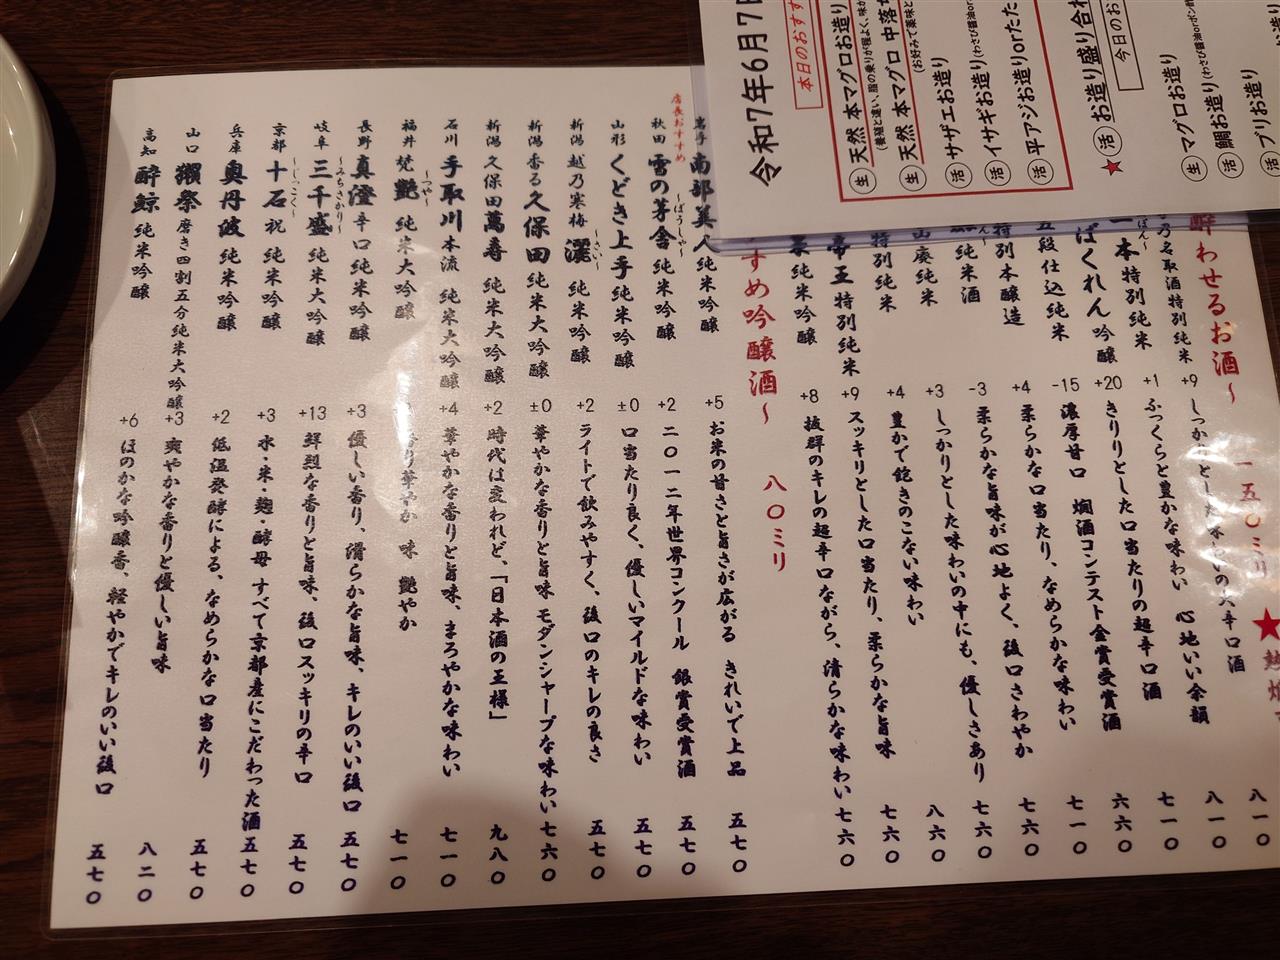 令和7年6月7日
本日のおすす
生 天然 本マグロお造り
(養殖と違い、脂の乗りが程よく、味か
生 天然 本マグロ 中落
(お好みで薬味と
活 サザエお造り
活 イサギお造り(わさび醤油or
活 平アジお造りorたた
★活 お造り盛り合わ
今日のお
生 マグロお造り
活 鯛お造り(わさび醤油orポン酢
活 ブリお造り
酔わせるお酒～ 一五〇ミリ ★熱燗
八一〇
乃名取酒特別純米 +9 しっかりとした味わいの大辛口酒 八一〇
一本 特別純米 +1 ふっくらと豊かな味わい 心地いい余韻 七一〇
ばくれん 吟醸 +20 きりりとした口当たりの超辛口酒 六六〇
五段仕込純米 -15 濃厚甘口 燗酒コンテスト金賞受賞酒 七一〇
特別本醸造 +4 柔らかな口当たり、なめらかな味わい 七六〇
純米酒 -3 柔らかな旨味が心地よく、後口さわやか 七六〇
山廃純米 +3 しっかりとした味わいの中にも、優しさあり 八六〇
特別純米 +4 豊かで飽きのこない味わい 七六〇
帝王 特別純米 +9 スッキリとした口当たり、柔らかな旨味
純米吟醸 +8 抜群のキレの超辛口ながら、清らかな味わい 七六〇
すめ吟醸酒～ 八〇ミリ
岩手 南部美人 純米吟醸 +5 お米の甘さと旨さが広がる きれいで上品 五七〇
店長おすすめ
秋田 雪の茅舎 ～ぼうしゃ～ 純米吟醸 +2 二〇一二年世界コンクール 銀賞受賞酒 五七〇
山形 くどき上手 純米吟醸 ±0 口当たり良く、優しいマイルドな味わい 五七〇
新潟 越乃寒梅 灑 ～さい～ 純米吟醸 +2 ライトで飲みやすく、後口のキレの良さ 五七〇
新潟 香る 久保田 純米大吟醸 ±0 華やかな香りと旨味 モダンシャープな味わい 七六〇
新潟 久保田 萬寿 純米大吟醸 +2 時代は変われど、「日本酒の王様」 九八〇
石川 手取川 本流 純米大吟醸 +4 華やかな香りと旨味、まろやかな味わい 七一〇
福井 梵 艶 ～つや～ 純米大吟醸 香り華やか 味 艶やか 七一〇
長野 真澄 辛口純米吟醸 +3 優しい香り、滑らかな旨味、キレのいい後口 五七〇
岐阜 三千盛 ～みちさかり～ 純米大吟醸 +13 鮮烈な香りと旨味、後口スッキリの辛口 五七〇
京都 十石 ～じっこく～ 祝 純米吟醸 +3 水・米・麹・酵母 すべて京都産にこだわった酒 五七〇
兵庫 奥丹波 純米吟醸 +2 低温発酵による、なめらかな口当たり 五七〇
山口 獺祭 磨き四割五分純米大吟醸 +3 爽やかな香りと優しい旨味 八二〇
高知 酔鯨 純米吟醸 +6 ほのかな吟醸香、軽やかでキレのいい後口 五七〇